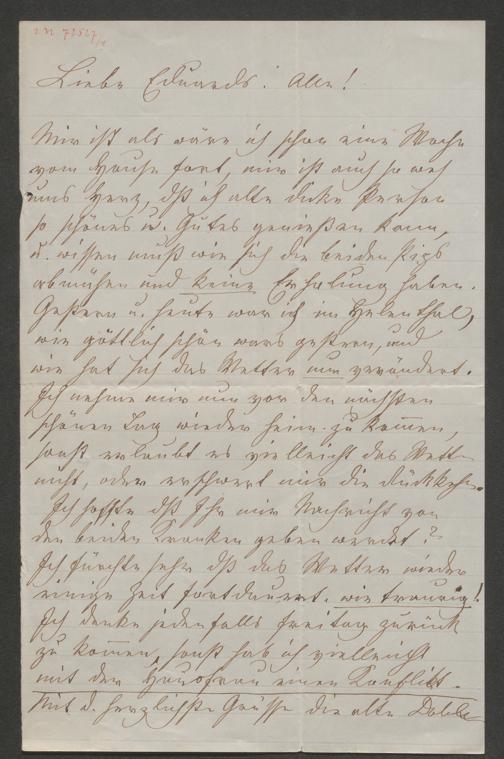 IN 72527/1
Liebe Eduards! Alle!
Mir ist als wäre ich schon eine Woche
vom Hause fort, mir ist auch so weh
ums Herz, dß ich alte dicke Person
so schönes u. Gutes genießen kann,
u. wissen muß wie sich die beiden
abmühen und keine Erholung haben.
Gestern u. heute war ich im Helenthal,
wie göttlich schön wars gestern, und
wie hat sich das Wetter nun verändert.
Ich nehme mir nun vor den nächsten
schönen Tag wieder heim zu kommen,
sonst erlaubt es vielleicht das Wetter
nicht, oder erschwert mir die Rückkehr.
Ich hoffe dß Ihr mir Nachricht von
den beiden Kranken geben werdet?
Ich fürchte sehr dß das Wetter wieder
einige Zeit fortdauert. wie traurig!
Ich denke jedenfalls Freitag zurück
zu kommen, sonst hab ich vielleicht
mit der Hausfrau einen Konflikt.
Mit d. herzlichsten Grüsse die alte